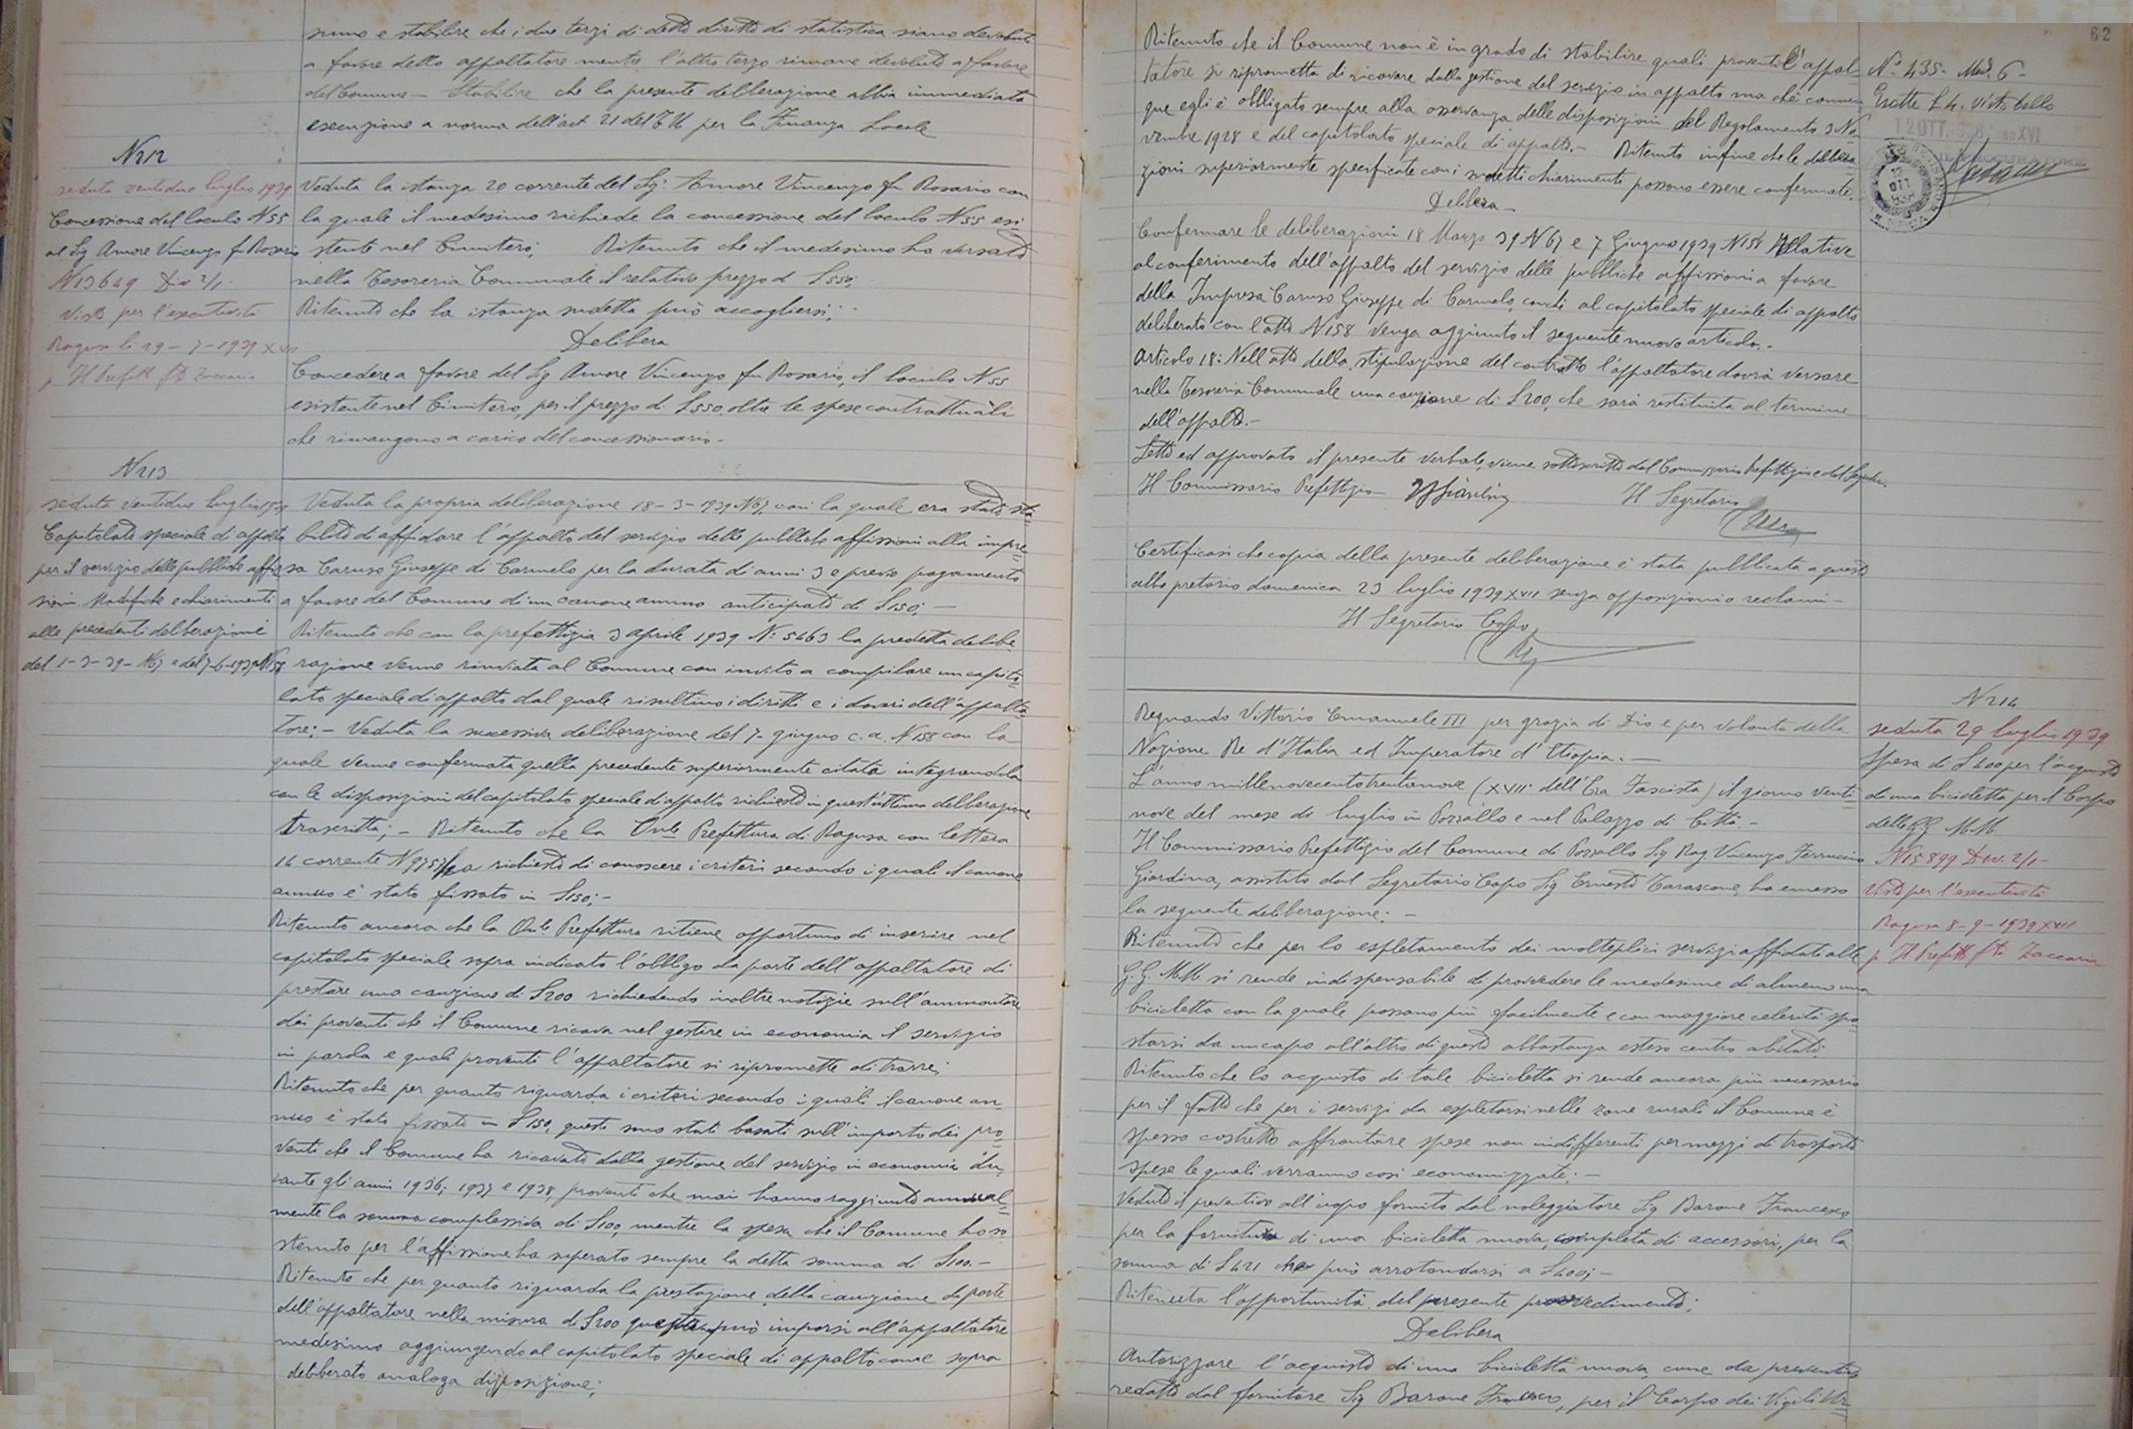 nuno e stabilire che i due terzi di detto diritto di statistica siano devoluti
a favore dello appaltatore mentre l'altro terzo rimane devoluto a favore
del Comune — Stabilire che la presente deliberazione abbia immediata
esecuzione a norma dell'art 21 del T U per la Finanza Locale
N 212
seduta ventidue luglio 1939
Concessione del loculo N 55
al Sig Amore Vincenzo fu Rosario
N 13649 Div 2/1
Visto per l'esecutività
Ragusa li 29-7-1939 XVII
p Il Prefetto fto Zaccaria
Veduta la istanza 20 corrente del Sig. Amore Vincenzo fu Rosario con
la quale il medesimo richiede la concessione del loculo N 55 esi
stente nel Cimitero; Ritenuto che il medesimo ha versato
nella Tesoreria Comunale il relativo prezzo di L 550;
Ritenuto che la istanza sudetta può accogliersi;
Delibera
Concedere a favore del Sig Amore Vincenzo fu Rosario, il loculo N 55
esistente nel Cimitero, per il prezzo di L 550 oltre le spese contrattuali
che rimangono a carico del concessionario.-
N 213
seduta ventidue luglio 1939
Capitolato speciale di appalto
per il servizio delle pubbliche affis
sioni. Modifiche e chiarimenti
alle precedenti deliberazioni
del 1-3-39-N67 e del 7-6-1939 N 158
Veduta la propria deliberazione 18-3-939 N 67, con la quale era stato sta=
bilito di affidare l'appalto del servizio delle pubbliche affissioni alla impre=
sa Caruso Giuseppe di Carmelo per la durata di anni 3 e previo pagamento
a favore del Comune di un canone annuo anticipato di L 150; —
Ritenuto che con la prefettizia 3 aprile 1939 N. 5463 la predetta delibe=
razione venne rinviata al Comune con invito a compilare un capito=
lato speciale di appalto dal quale risultino i diritti e i doveri dell'appalta=
tore; - Veduta la successiva deliberazione del 7- giugno c.a. N 158 con la
quale venne confermata quella precedente superiormente citata integrandola
con le disposizioni del capitolato speciale d'appalto richiesto in quest'ultima deliberazione
trascritta; - Ritenuto che la On.le Prefettura di Ragusa con lettera
14 corrente N 9757 ha richiesto di conoscere i criteri secondo i quali il canone
annuo è stato fissato in L 150; -
Ritenuto ancora che la On.le Prefettura ritiene opportuno di inserire nel
capitolato speciale sopra indicato l'obbligo da parte dell'appaltatore di
prestare una cauzione di L 200 richiedendo inoltre notizie sull'ammontare
dei proventi che il Comune ricava nel gestire in economia il servizio
in parola e quali proventi l'appaltatore si ripromette di trarre;
Ritenuto che per quanto riguarda i criteri secondo i quali il canone an=
nuo è stato fissato in L 150, questi sono stati basati sull'importo dei pro=
venti che il Comune ha ricavato dalla gestione del servizio in economia du=
rante gli anni 1936; 1937 e 1938, proventi che mai hanno raggiunto annual=
mente la somma complessiva di L 100, mentre la spesa che il Comune ha so
stenuto per l'affissione ha superato sempre la detta somma di L 100.-
Ritenuto che per quanto riguarda la prestazione della cauzione da parte
dell'appaltatore nella misura di L 200 questa può imporsi all'appaltatore
medesimo aggiungendo al capitolato speciale di appalto come sopra
deliberato analoga disposizione;
62
Ritenuto che il Comune non è in grado di stabilire quali proventi l'appal=
tatore si riprometta di ricavare dalla gestione del servizio in appalto ma che comun
que egli è obbligato sempre alla osservanza delle disposizioni del Regolamento 3 No=
vembre 1928 e del capitolato speciale di appalto.- Ritenuto infine che le delibera
zioni superiormente specificate con i sudetti chiarimenti possono essere confermate.
Delibera —
Confermare le deliberazioni 18 Marzo 39 N 67 e 7 Giugno 1939 N 158 relative
al conferimento dell'appalto del servizio delle pubbliche affissioni a favore
della Impresa Caruso Giuseppe di Carmelo, al capitolato speciale di appalto
deliberato con l'atto N 158 venga aggiunto il seguente nuovo articolo.-
Articolo 18: Nell'atto della stipulazione del contratto l'appaltatore dovrà versare
nella Tesoreria Comunale una cauzione di L 200, che sarà restituita al termine
dell'appalto.-
Letto ed approvato il presente verbale, viene sottoscritto dal Commissario Prefettizio e dal Segretario
Il Commissario Prefettizio — Giardina
Il Segretario
Certificasi che copia della presente deliberazione è stata pubblicata a questo
albo pretorio domenica 23 luglio 1939 XVII senza opposizioni o reclami —
Il Segretario Capo
N° 435- Mod. 6-
Esatte L 4. visto bollo
12 OTT. XVI
IL PROCURATORE
12
OTT
Regnando Vittorio Emanuele III per grazia di Dio e per volontà della
Nazione Re d'Italia ed Imperatore d'Etiopia. —
L'anno millenovecentotrentanove (XVII dell'Era Fascista) il giorno venti
nove del mese di luglio in Pozzallo e nel Palazzo di Città.-
Il Commissario Prefettizio del Comune di Pozzallo Sig Rag. Vincenzo Ferruccio
Giardina, assistito dal Segretario Capo Sig Ernesto Tarascone, ha emesso
la seguente deliberazione: -
Ritenuto che per lo espletamento dei molteplici servizi affidati alle
G.G. M.M. si rende indispensabile di provvedere le medesime di almeno una
bicicletta con la quale possano più facilmente e con maggiore celerità spo=
starsi da un capo all'altro di questo abbastanza esteso centro abitato;
Ritenuto che lo acquisto di tale bicicletta si rende ancora più necessario
per il fatto che per i servizi da espletarsi nelle zone rurali il Comune è
spesso costretto affrontare spese non indifferenti per mezzi di trasporto
spese le quali verranno così economizzate; -
Veduto il preventivo all'uopo fornito dal noleggiatore Sig Barone Francesco
per la fornitura di una bicicletta nuova, completa di accessori, per la
somma di L 421 che può arrotondarsi a L 400; -
Ritenuta l'opportunità del presente provvedimento;
Delibera
Autorizzare l'acquisto di una bicicletta nuova, come da preventivo
redatto dal fornitore Sig Barone Francesco, per il Corpo dei Vigili Ur=
N 214
seduta 29 luglio 1939
Spesa di L 400 per l'acquisto
di una bicicletta per il Corpo
delle GG MM
N 15899 Div. 2/1-
Visto per l'esecutività
Ragusa 8-9-1939 XVII
p Il Prefetto fto Zaccaria